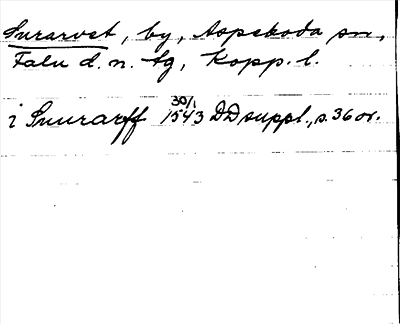 Snrarvet, by, Aspeboda sn,
Falu d. n. tg, Kopp. l.
i Snurarff 30/1 1543 DD suppl., s. 36 or.